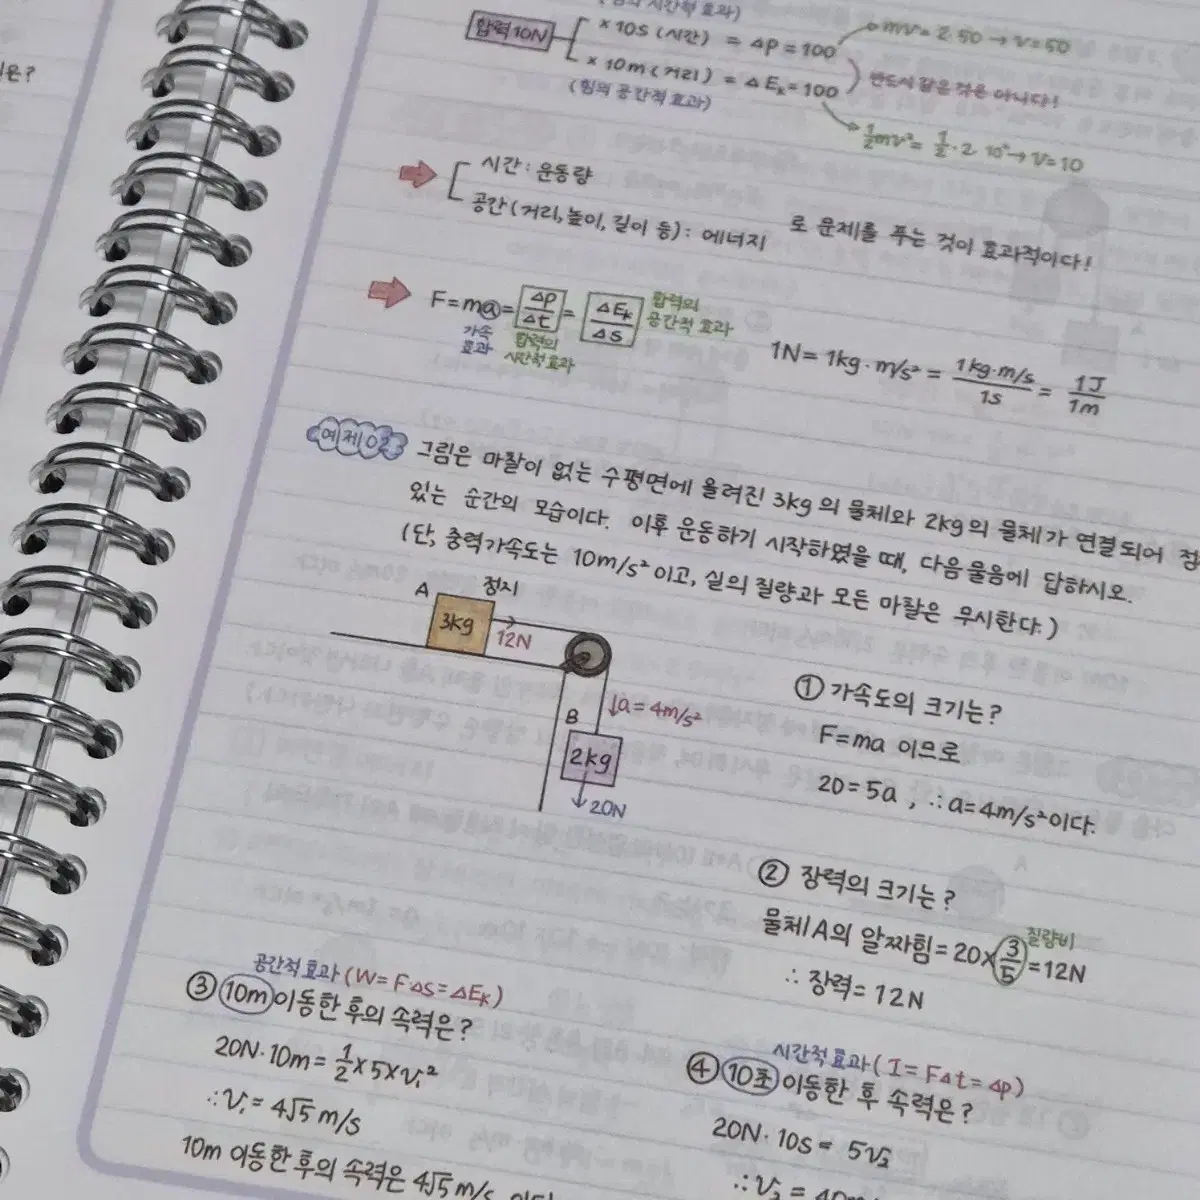 은?
시간적 효과)
합력 10N
× 10s (시간) = ΔP = 100
mv = 2·50 → v = 50
× 10m (거리) = ΔEₖ = 100
반드시 같은 것은 아니다!
(힘의 공간적 효과)
½mv² = ½·2·10² → v = 10
시간 : 운동량
공간 (거리, 높이, 길이 등) : 에너지
로 문제를 푸는 것이 효과적이다!
F = ma = ΔP/Δt = ΔEₖ/Δs
합력의
공간적 효과
가속
효과
합력의
시간적 효과
1N = 1kg·m/s² = 1kg·m/s / 1s = 1J / 1m
예제 02
그림은 마찰이 없는 수평면에 올려진 3kg의 물체와 2kg의 물체가 연결되어 정
있는 순간의 모습이다. 이후 운동하기 시작하였을 때, 다음 물음에 답하시오.
(단, 중력가속도는 10m/s²이고, 실의 질량과 모든 마찰은 무시한다.)
A
정지
3kg
12N
B
↓a = 4m/s²
2kg
↓20N
① 가속도의 크기는?
F=ma 이므로
20 = 5a , ∴ a = 4m/s²이다.
② 장력의 크기는?
물체A의 알짜힘 = 20 × 3/5 = 12N
질량비
∴ 장력 = 12N
공간적 효과 (W = FΔs = ΔEₖ)
③ 10m 이동한 후의 속력은?
20N·10m = ½ × 5 × v₁²
∴ v₁ = 4√5 m/s
10m 이동한 후의 속력은 4√5 m/s 이다
시간적 효과 ( I = FΔt = Δp)
④ 10초 이동한 후 속력은?
20N·10s = 5v₂
∴ v₂ = 40m